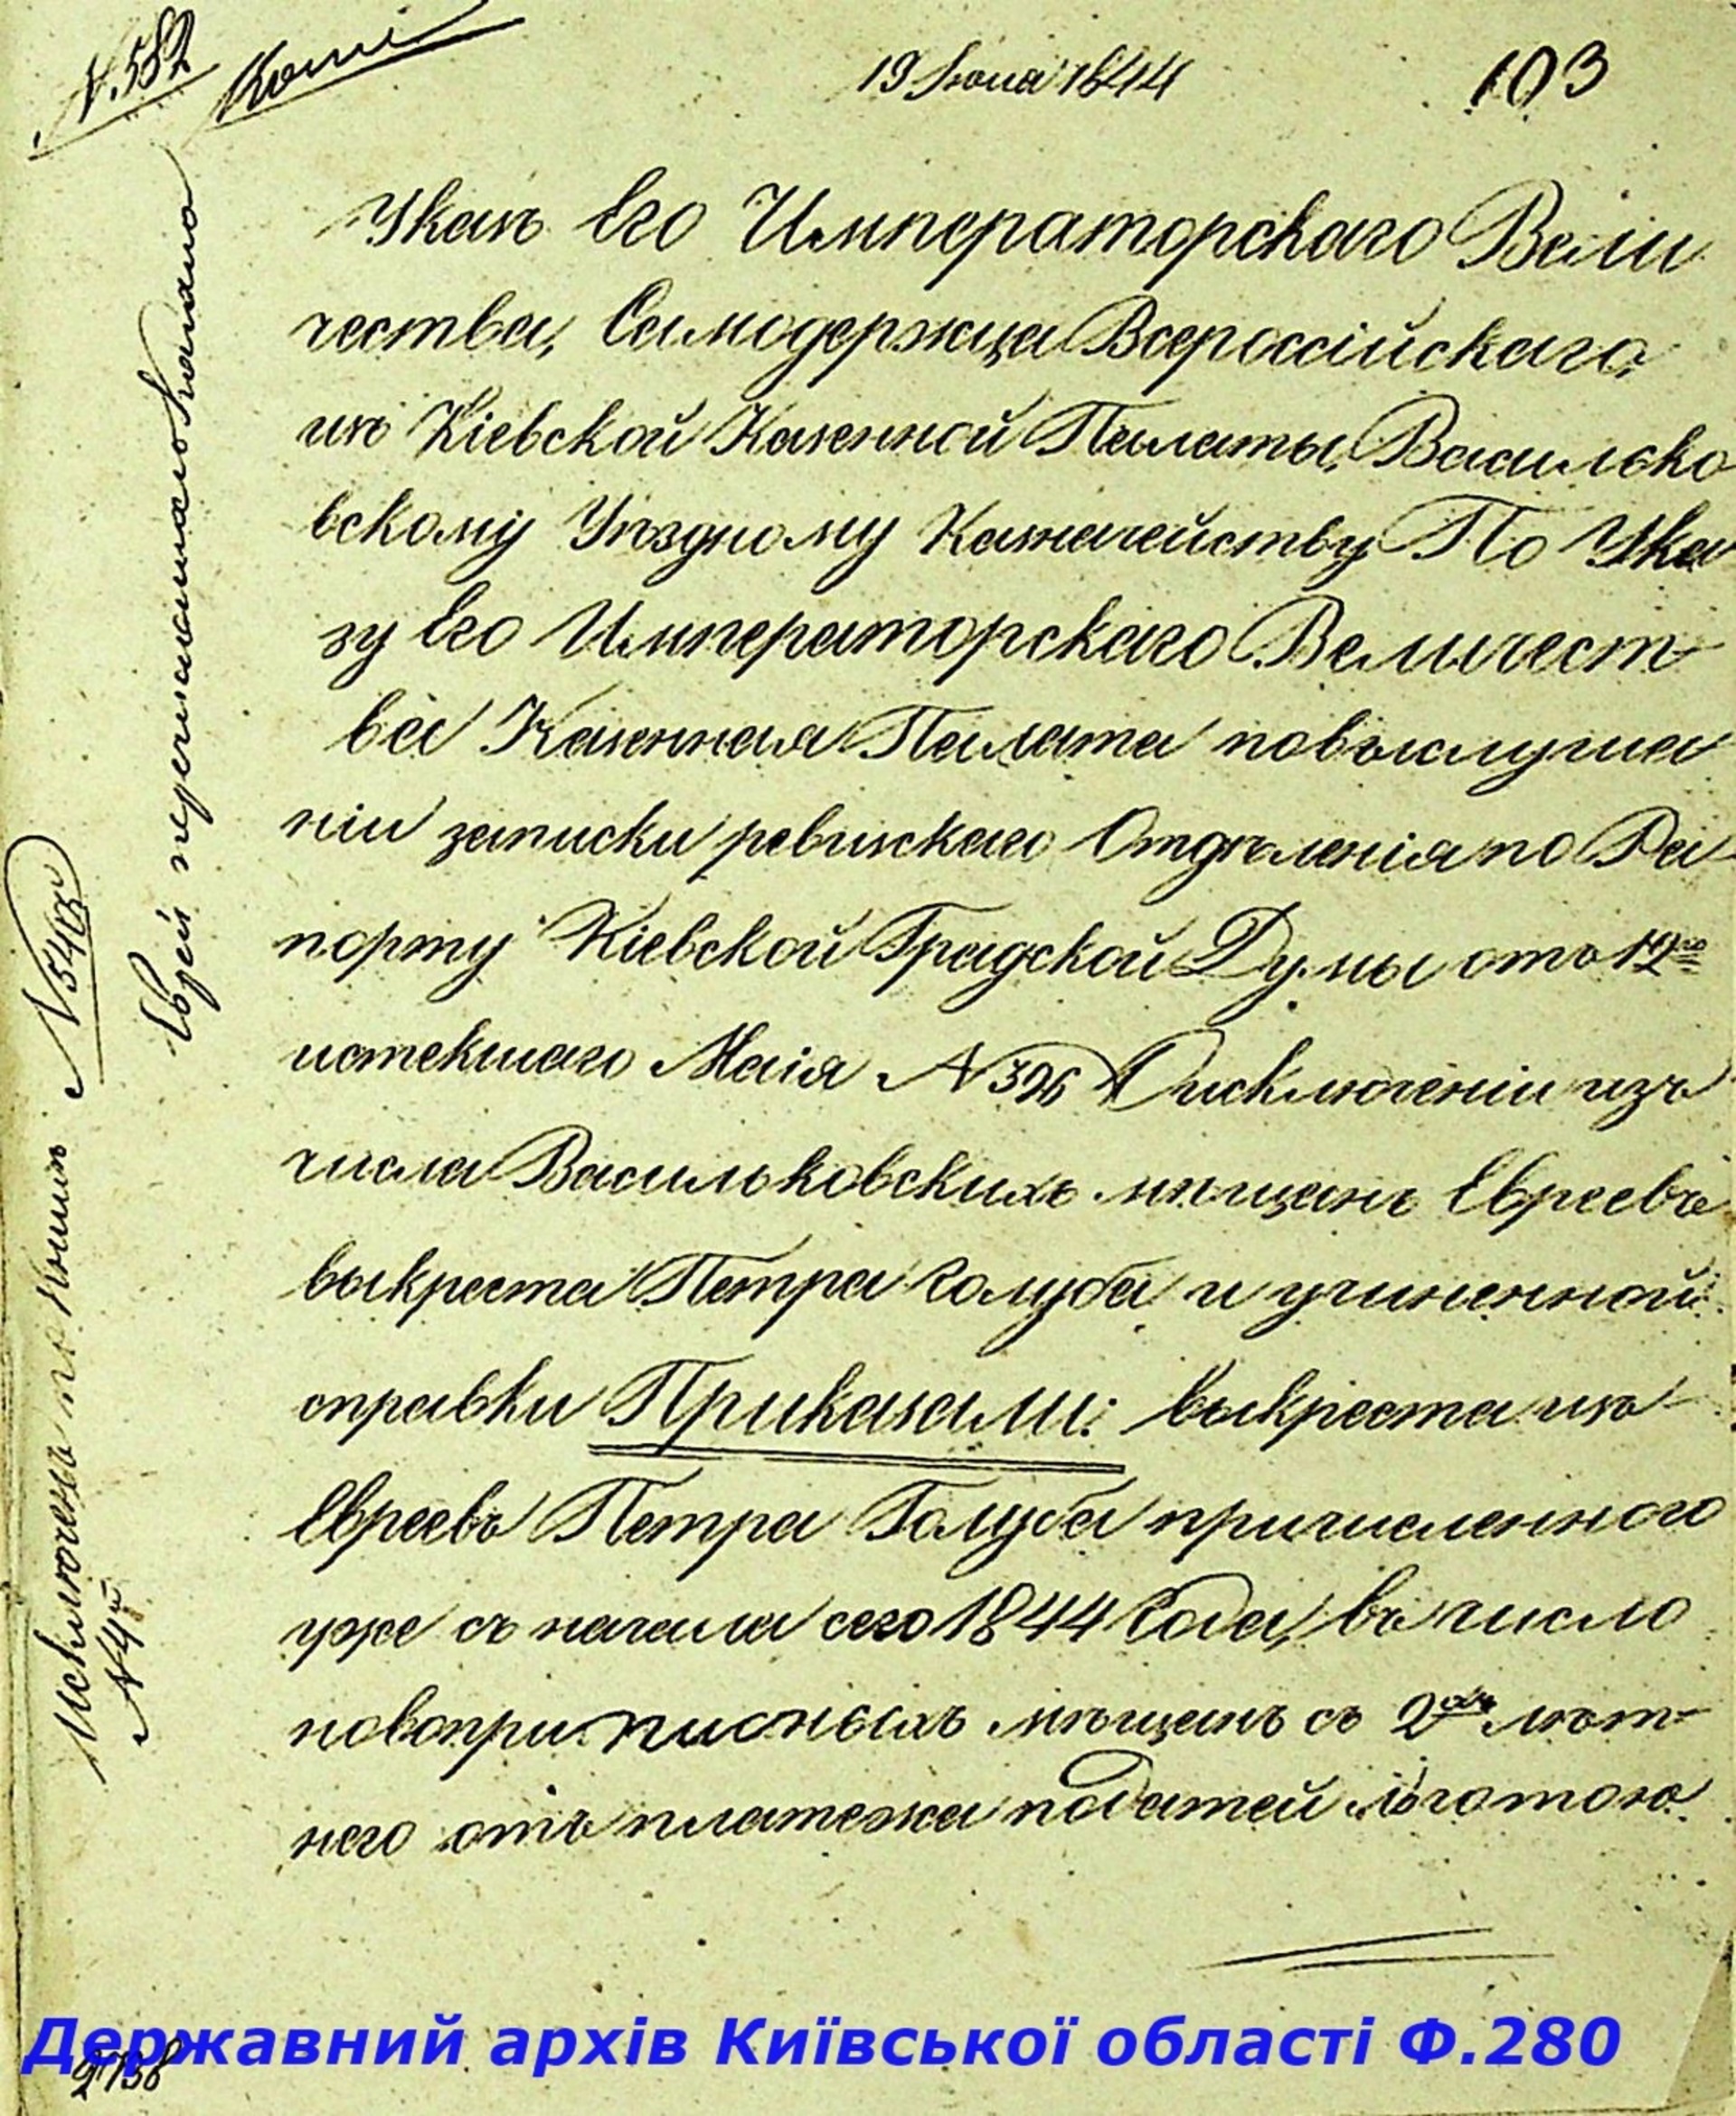 N. 582
Копія
19 Іюня 1844
103
Указъ Его Императорскаго Вели
чества, Самодержца Всероссійскаго,
изъ Кіевской Казенной Палаты, Василько
вскому Уѣздному Казначейству По Ука
зу Его Императорскаго Величест
ва Казенная Палата повыслуша
ніи записки ревизскаго Отдѣленія по Ра
порту Кіевской Градской Думы отъ 12го
истекшаго Маія N 396 О исключеніи изъ
числа Васильковскихъ мѣщанъ Евреевъ
выкреста Петра Голуба и учиненной
справки Приказали: выкреста изъ
Евреевъ Петра Голуба причисленного
уже съ начала сего 1844 Года, въ число
новоприписныхъ мѣщанъ съ 2хъ лѣт
него отъ платежа податей льготою
Исключенъ по
N 4й
N 5403
2738
Державний архів Київської області Ф.280